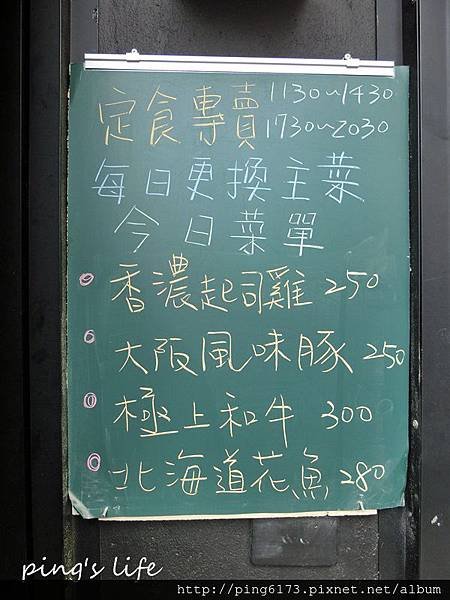 定食專賣 1130~1430
1730~2030
每日更換主菜
今日菜單
香濃起司雞 250
大阪風味豚 250
極上和牛 300
北海道花魚 280
ping's life
http://ping6173.pixnet.net/album